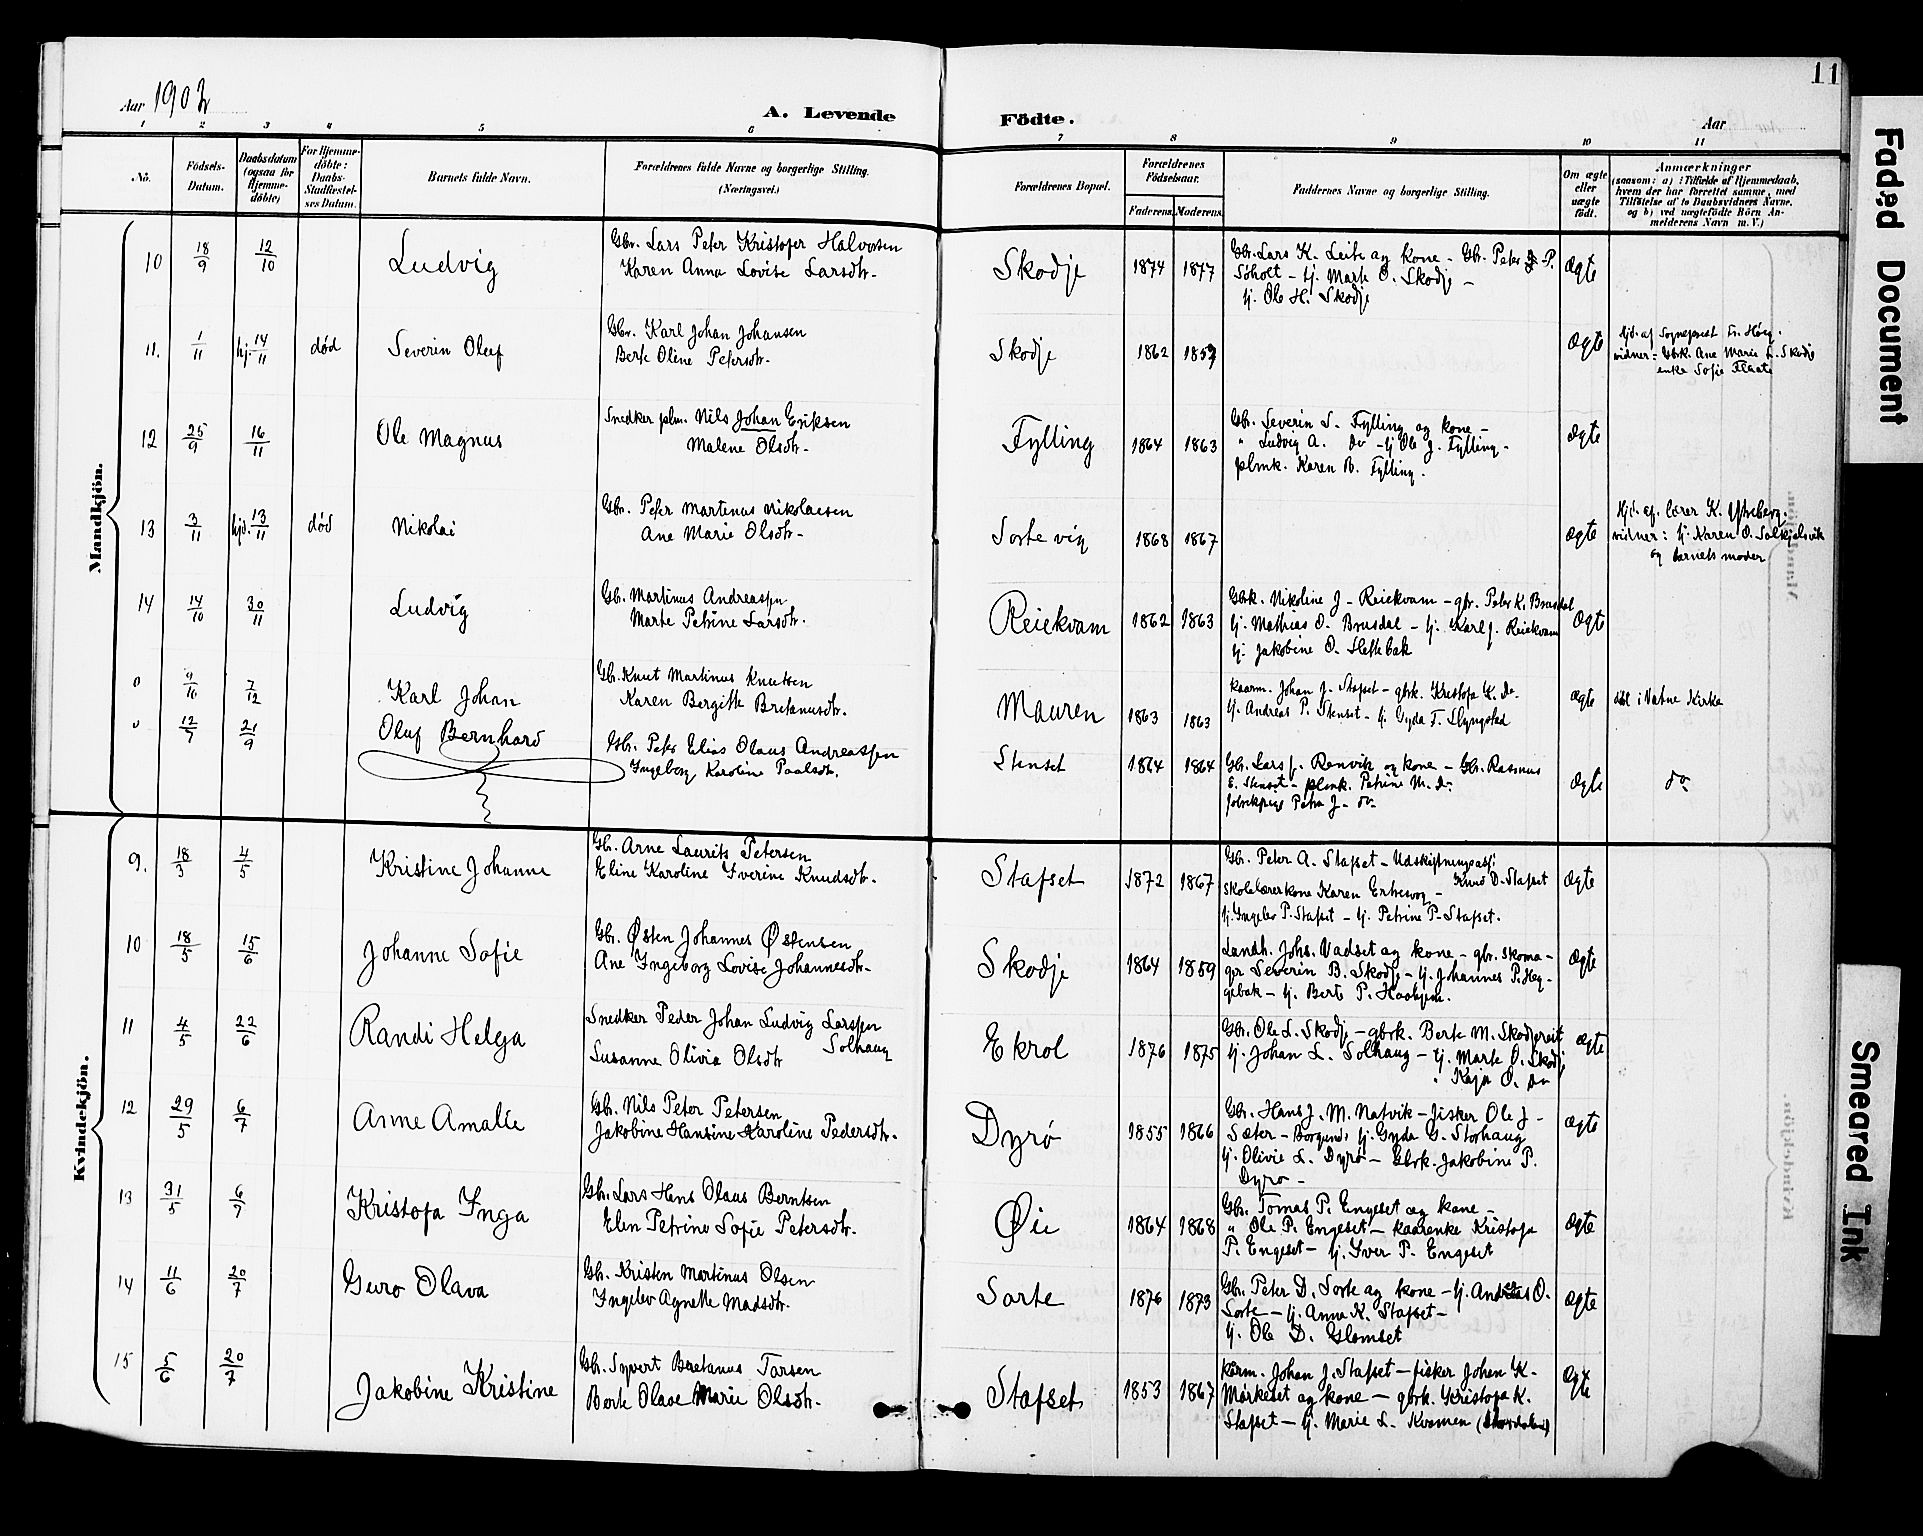 Aar 1902
A. Levende
Födte.
Aar
11
1 2 3 4 5 6 7 8 9 10 11
No.
Födsels-Datum.
Daabsdatum (ogsaa for Hjemme-döbte)
For Hjemme-döbte: Daabs-Stadfæstel-ses Datum.
Barnets fulde Navn.
Forældrenes fulde Navne og borgerlige Stilling.
(Næringsvei.)
Forældrenes Bopæl.
Forældrenes Födselsaar.
Faderens Moderens
Faddernes Navne og borgerlige Stilling.
Om ægte eller uægte födt.
Anmærkninger
(saasom: a) i Tilfælde af Hjemmedaab,
hvem der har forrettet samme, med
Tilföielse af to Daabsvidners Navne.
og b) ved uægtefödte Börn An-
melderens Navn m. V.)
Mandkjön.
10 18/9 12/10 Ludvig
Gbr. Lars Peter Kristofer Halvorsen
Karen Anna Lovise Larsdtr.
Skodje 1874 1877
Gbr. Lars K. Leite og Kone - Gbr. Peter P.
Søholt - Uj. Marte O. Skodje -
Uj. Ole H. Skodje
Ægte
11. 1/11 hj. 14/11 død Severin Oluf
Gbr. Karl Johan Johansen
Berte Oline Petersdtr.
Skodje 1862 1857
Ægte
Hjd. af Sogneprest Fr. Høeg.
vidner: Gbrk. Ane Marie L. Skodje
enke Sofie Flaate
12 25/9 16/11 Ole Magnus
Snedker plm. Nils Johan Eriksen
Malene Olsdtr.
Fylling 1864 1863
Gbr. Severin S. Fylling og kone -
" Ludvig A. do - Uj Ole J. Fylling -
plmk. Karen B. Fylling.
Ægte
13 3/11 hjd. 13/11 død Nikolai
Gbr. Peter Martinus Nikolaisen
Ane Marie Olsdtr.
Sortevig 1868 1867
Ægte
Hjd. af lærer K. Ytreberg.
vidner: Uj. Karen O. Solkjelsvik
og barnets moder
14 14/10 30/11 Ludvig
Gb. Martinus Andreassen
Marte Petrine Larsdtr.
Reiekvam 1862 1863
Gbrk. Nikoline J - Reiekvam - gbr. Peter K. Brusdal
Uj. Mathias O. Brusdal - Uj. Karl J. Reiekvam
Uj. Jakobine O. Slettebak
Ægte
0 9/10 7/12 Karl Johan
Gb. Knut Martinus Knutsen
Karen Bergitte Bretanusdtr.
Mauren 1863 1863
kaarm. Johan J. Stafset - gbrk. Kristofa K. Do
Uj. Andreas P. Stenset - Uj Gyda F. Slyngstad
Ægte
i Vatne Kirke
0 12/7 21/9 Oluf Bernhard
Gbr. Peter Elias Olaus Andreassen
Ingeborg Karoline Paalsdtr.
Stenset 1864 1864
Gbr. Lars J. Renvik og kone - Gbr. Rasmus
E. Stenset - plmk. Petrine M. do
Petra J - do
Ægte
do
Kvindekjön.
9. 18/3 4/5 Kristine Johanne
Gb. Arne Laurits Petersen
Eline Karoline Iverine Knudsdtr.
Stafset 1872 1867
Gbr. Peter A. Stafset - Udskiftningsass.
Knud D. Stafset
skolelærerkone Karen -
Uj. Ingelev P. Stafset - Uj. Petrine P. Stafset.
Ægte
10 18/5 15/6 Johanne Sofie
Gbr. Østen Johannes Østensen
Ane Ingeborg Lovise Johannesdtr.
Skodje 1864 1859
Landh. Johs. Vadset og kone - gbr. skoma-
ger Severin B. Skodje - Uj. Johannes P. Heg-
gebak - Uj. Berte P. Haahjem.
Ægte
11 4/5 22/6 Randi Helga
Snedker Peder Johan Ludvig Larssen
Solhaug
Susanne Olivia Olsdtr
Ekrol 1876 1875
Gbr. Ole L. Skodje - gbrk. Berte M. Skodjereit
Uj. Johan L. Solhaug - Uj. Marte O. Skodje
" Kaja O. do
Ægte
12 29/5 6/7 Anne Amalie
Gb. Nils Peter Petersen
Jakobine Hansine Karoline Pedersdtr.
Dyrø 1855 1866
Gbr. Hans J. M. Natvik - fisker Ole J -
Sæter - Borgund, Uj. Gyda G. Storhaug
Uj. Olivie L. Dyrø - Gbrk. Jakobine P.
Dyrø -
Ægte
13 31/5 6/7 Kristofa Inga
Gbr. Lars Hans Olaus Berntsen
Elen Petrine Sofie Petersdtr.
Øie 1864 1868
Gbr. Tomas P. Engeset og kone -
" Ole P. Engeset - kaarenke Kristofa
P. Engeset - Uj. Iver P. Engeset
Ægte
14 11/6 20/7 Guro Olava
Gb. Kristen Martinus Olsen
Ingelev Agnette Madsdtr.
Sorte 1876 1873
Gbr. Peter D. Sorte og kone - Uj. Andreas O.
Sorte - Uj. Anna K. Stafset -
Uj. Ole D. Glomset
Ægte
15 5/6 20/7 Jakobine Kristine
Gb. Syvert Bretanus Torsen
Berte Olave Marie Olsdtr.
Stafset 1853 1867
kårm. Johan J. Stafset - fisker Johan K.
Mørkeset og kone - gbrk. Kristofa K.
Stafset - Uj. Marie L. Kvamen
Ægte
Faded Document
Smeared Ink